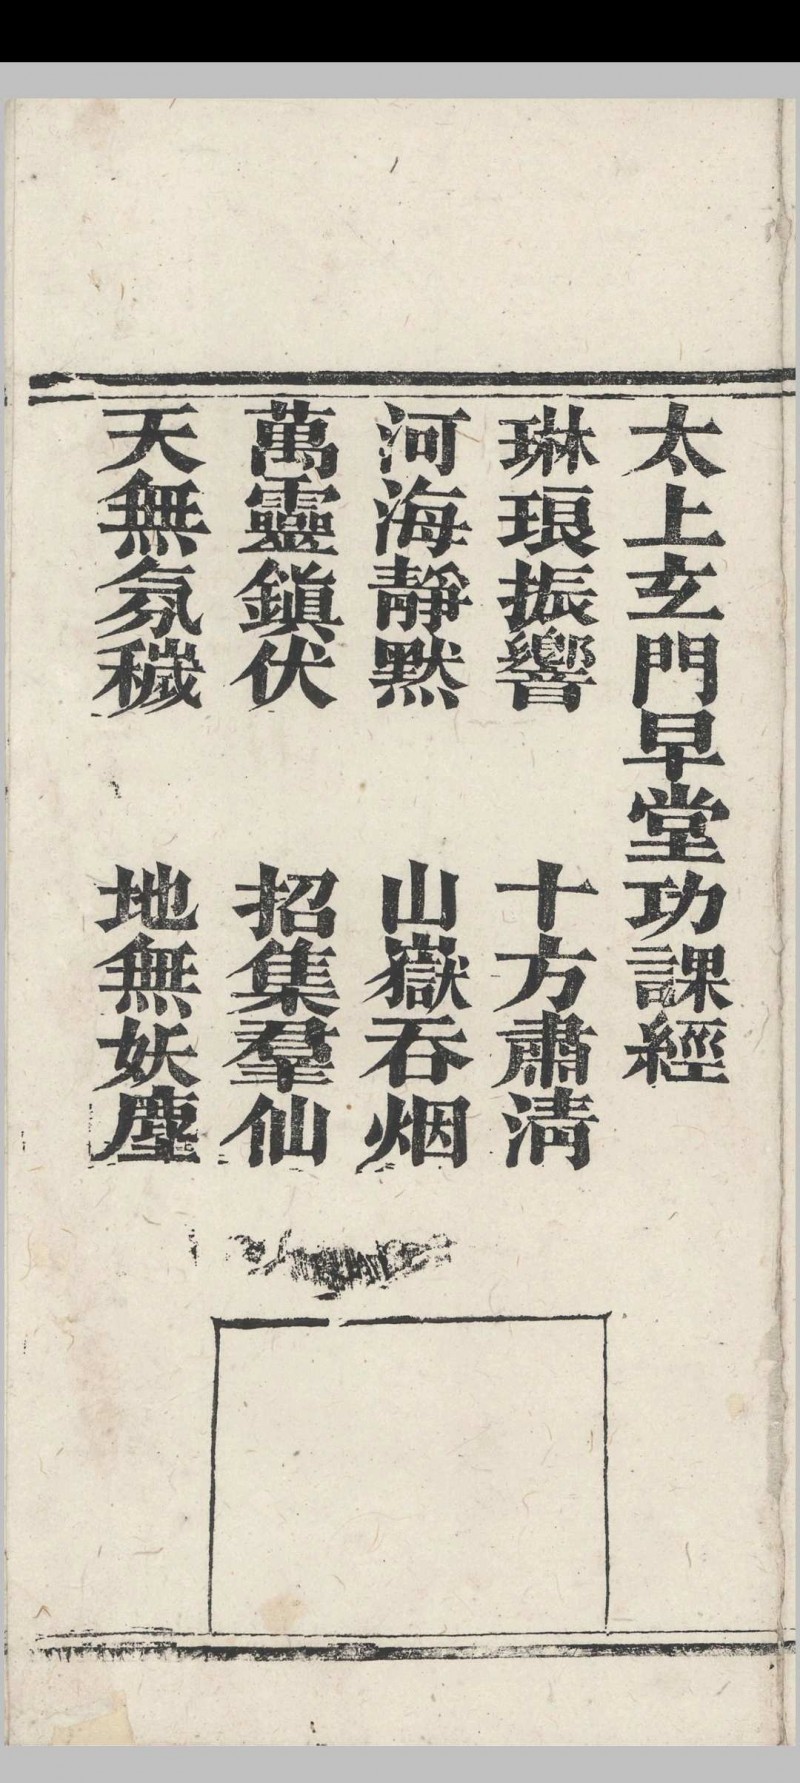 太上玄門早堂功課經
琳琅振響　十方肅淸
河海靜默　山嶽吞烟
萬靈鎭伏　招集羣仙
天無氛穢　地無妖塵